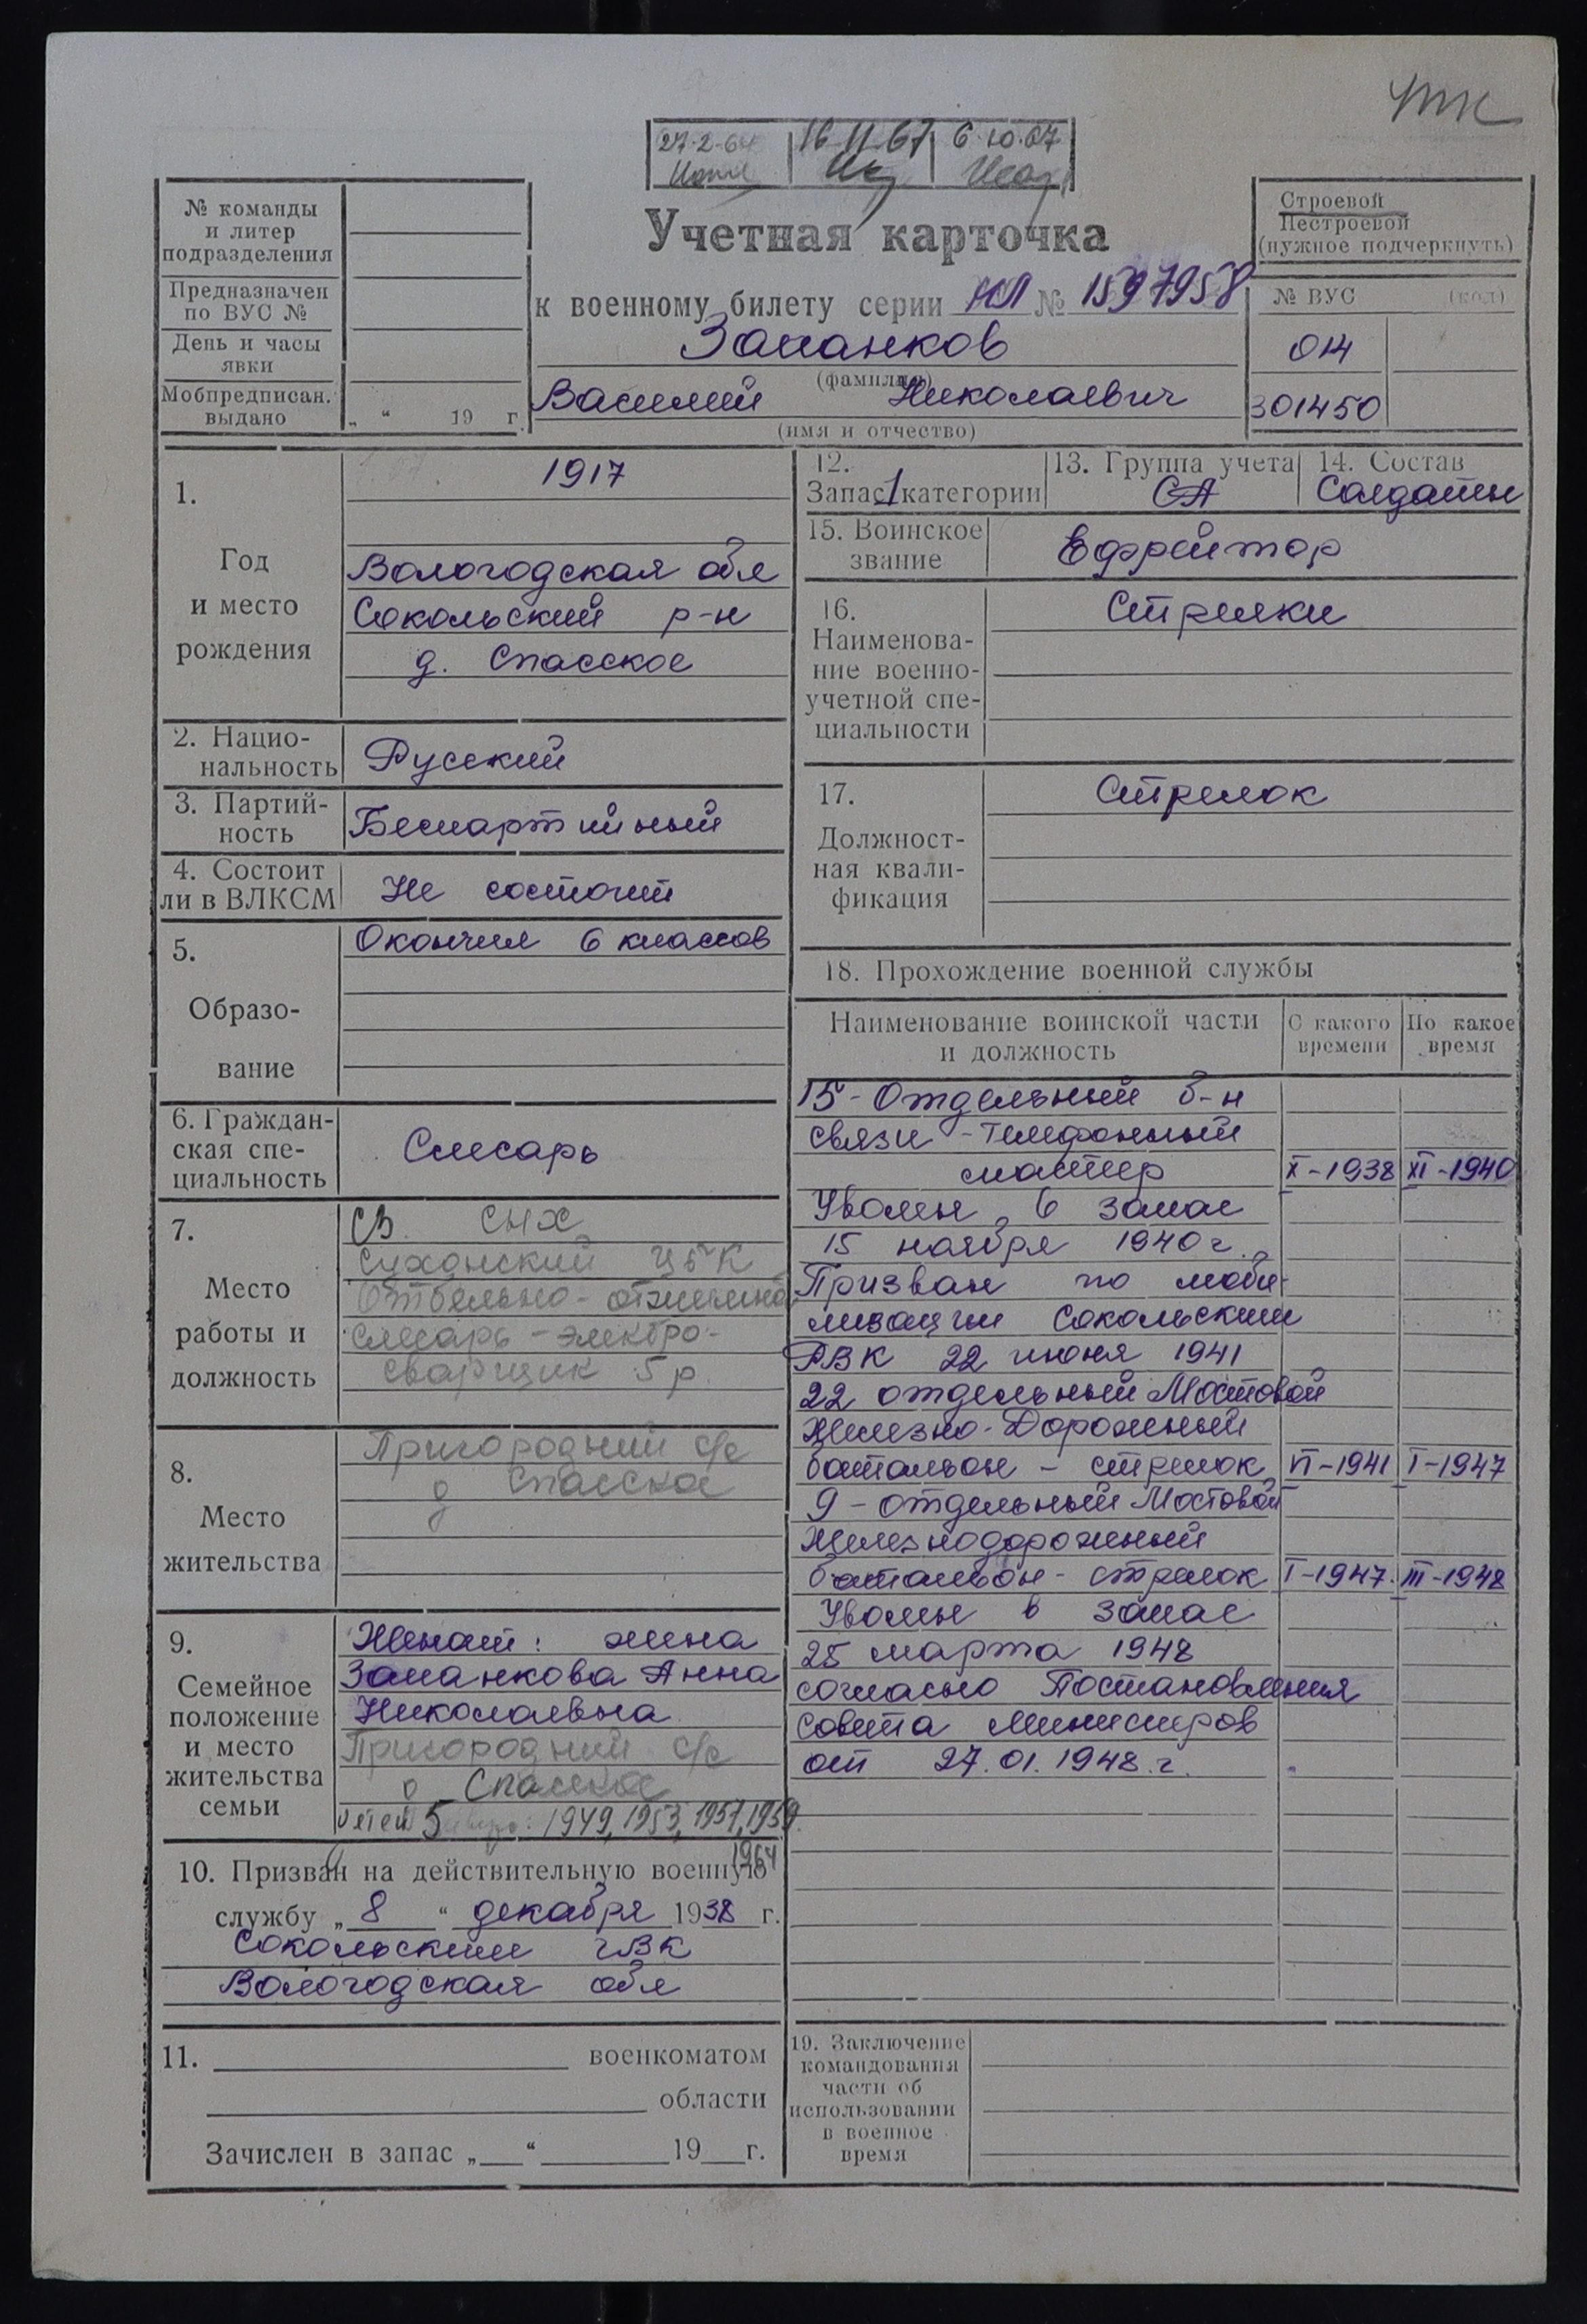 27-2-64 16 11 67 6.10.67
№ команды
и литер
подразделения
Предназначен
по ВУС №
День и часы
явки
Мобпредписан.
выдано
„ “ 19 г.
Учетная карточка
к военному билету серии НЛ № 1597958
Запанков
(фамилия)
Василий Николаевич
(имя и отчество)
Строевой
Нестроевой
(нужное подчеркнуть)
№ ВУС (код)
014
301450
1.
Год
и место
рождения
1917
Вологодская обл
Сокольский р-н
д. Спасское
2. Нацио-
нальность
Русский
3. Партий-
ность
Беспартийный
4. Состоит
ли в ВЛКСМ
Не состоит
5.
Образо-
вание
Окончил 6 классов
6. Граждан-
ская спе-
циальность
Слесарь
7.
Место
работы и
должность
СВ СНХ
Сухонский ЦБК
Отбельно-
слесарь - электро-
сварщик 5 р.
8.
Место
жительства
Пригородний с/с
д Спасское
9.
Семейное
положение
и место
жительства
семьи
Женат: жена
Запанкова Анна
Николаевна
Пригородний с/с
д Спасское
детей 5 1949, 1953, 1957, 1959.
1964
10. Призван на действительную военную
службу „ 8 “ декабря 1938 г.
Сокольским ГВК
Вологодская обл
11. военкоматом
области
Зачислен в запас „ “ 19 г.
12.
Запас 1 категории
13. Группа учета
СА
14. Состав
Солдаты
15. Воинское
звание
Ефрейтор
16.
Наименова-
ние военно-
учетной спе-
циальности
Стрелки
17.
Должност-
ная квали-
фикация
Стрелок
18. Прохождение военной службы
Наименование воинской части
и должность
С какого
времени
По какое
время
15 - Отдельный б-н
связи - телефонный
мастер X-1938 XI-1940
Уволен в запас
15 ноября 1940 г.
Призван по моби-
лизации Сокольским
РВК 22 июня 1941
22 отдельный Мостовой
Железно-Дорожный
батальон - стрелок VI-1941 I-1947
9 - отдельный Мостовой
Железнодорожный
батальон - стрелок I-1947. III-1948
Уволен в запас
25 марта 1948
согласно Постановления
Совета Министров
от 27.01.1948.г.
19. Заключение
командования
части об
использовании
в военное
время